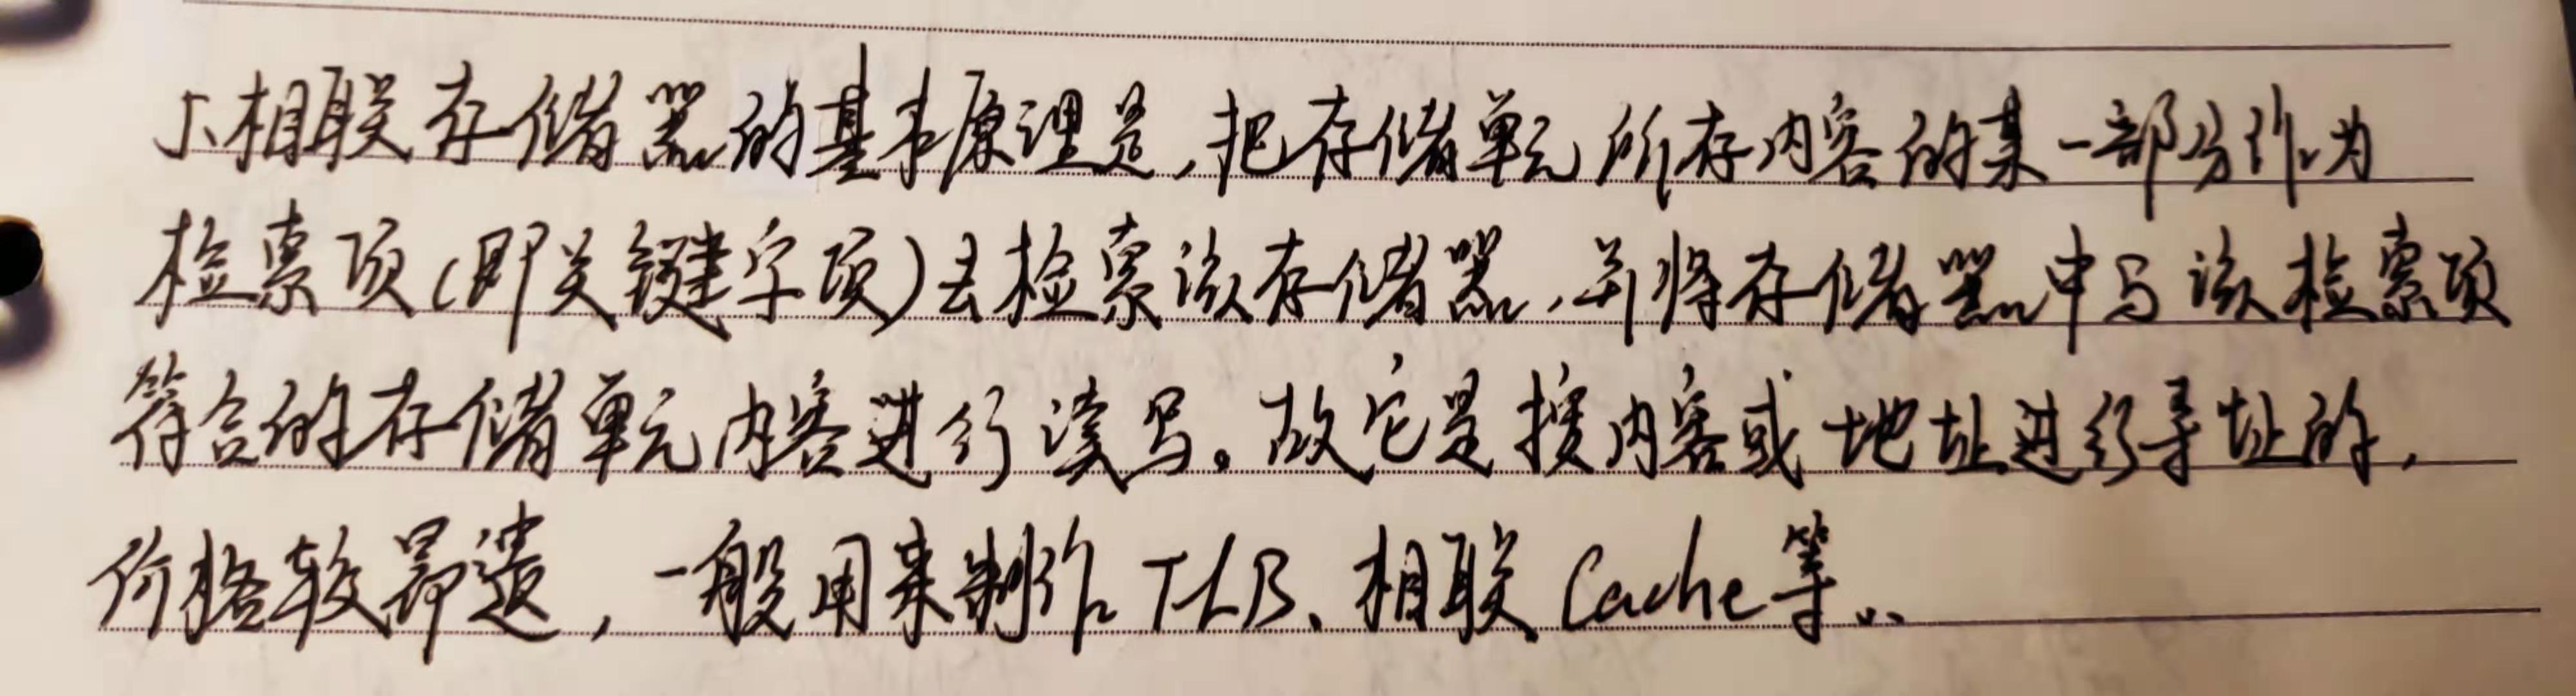 1、相联存储器的基本原理是,把存储单元所存内容的某一部分作为
检索项(即关键字项)去检索该存储器,并将存储器中与该检索项
符合的存储单元内容进行读写。故它是按内容或地址进行寻址的,
价格较昂遗,一般用来制作TLB、相联Cache等..